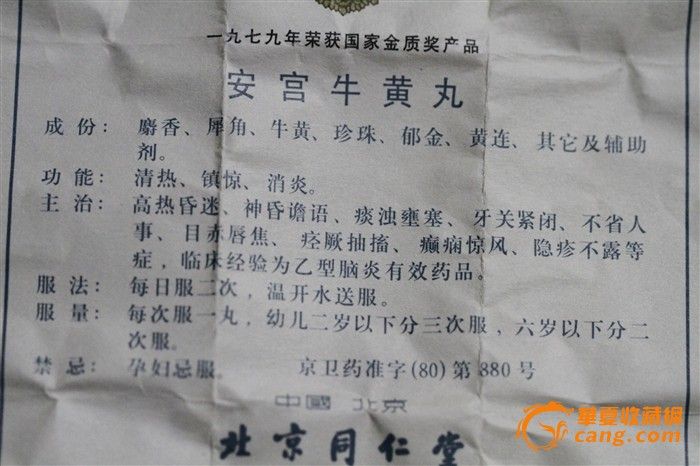 一九七九年荣获国家金质奖产品
安宫牛黄丸
成份：麝香、犀角、牛黄、珍珠、郁金、黄连、其它及辅助
剂。
功能：清热、镇惊、消炎。
主治：高热昏迷、神昏谵语、痰浊壅塞、牙关紧闭、不省人
事、目赤唇焦、痉厥抽搐、癫痫惊风、隐疹不露等
症，临床经验为乙型脑炎有效药品。
服法：每日服二次，温开水送服。
服量：每次服一丸，幼儿二岁以下分三次服，六岁以下分二
次服。
禁忌：孕妇忌服。 京卫药准字(80)第880号
中國 北京
北京同仁堂
華夏收藏網
cang.com